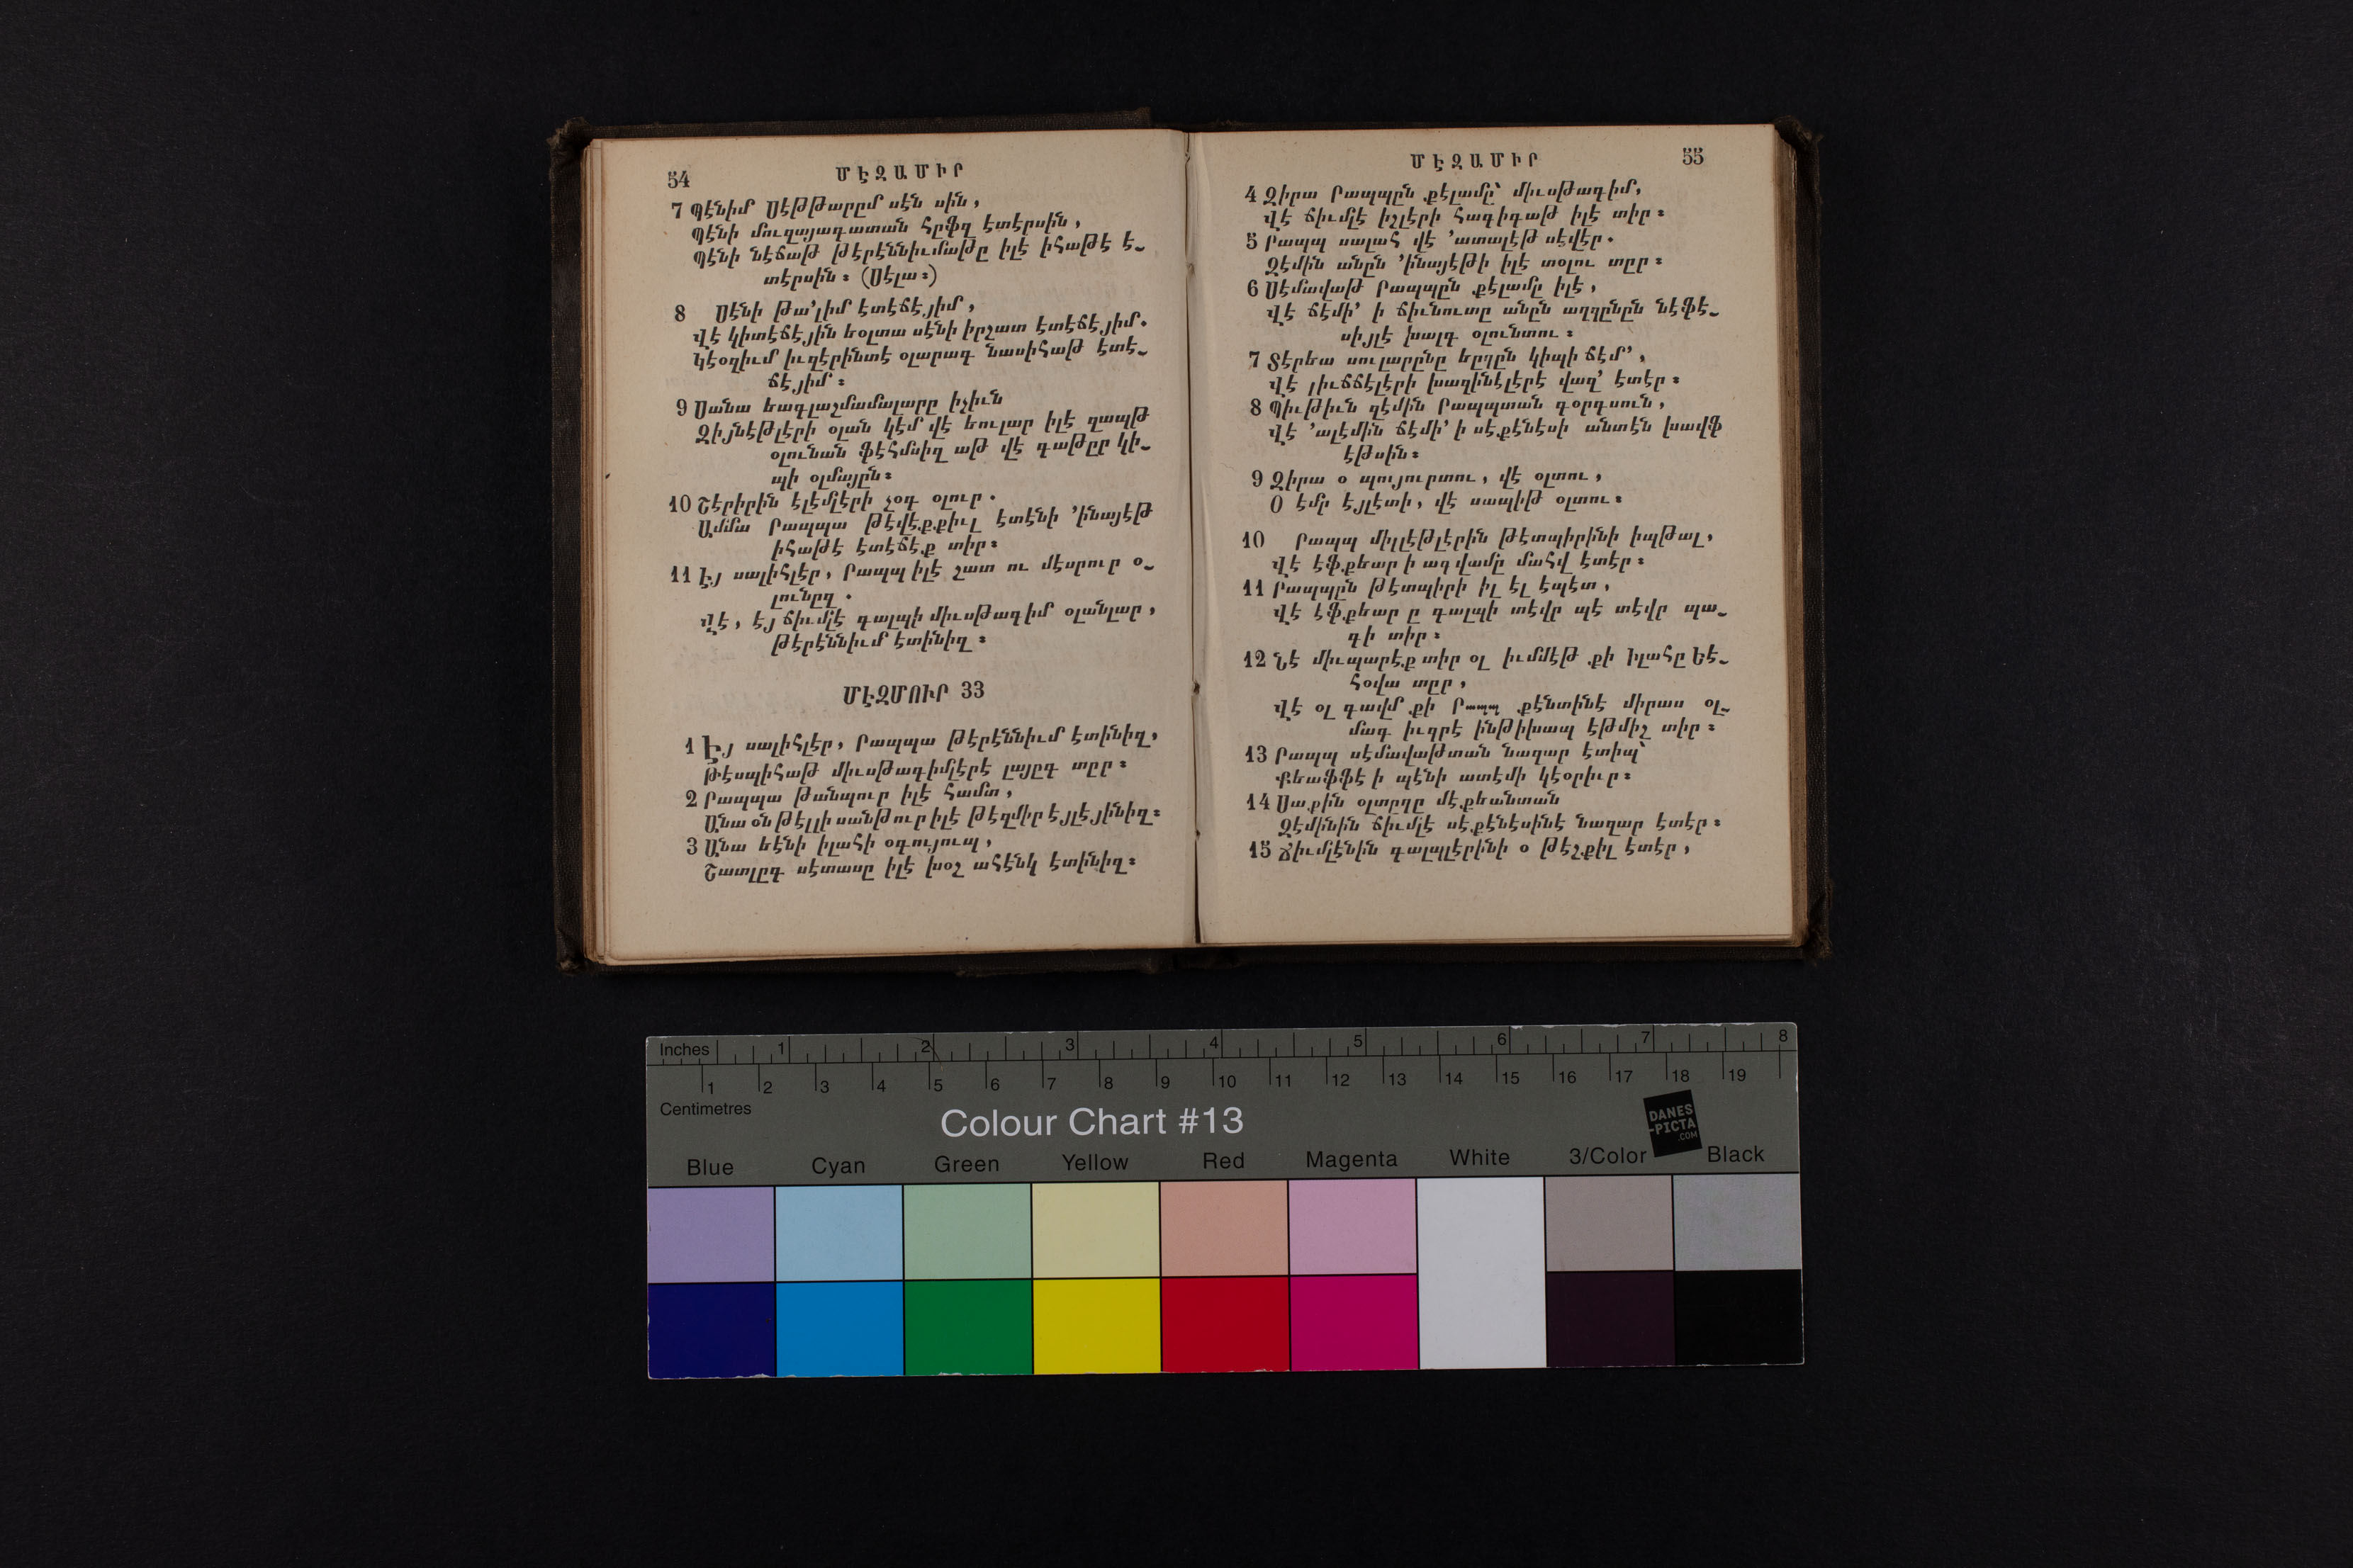 54 ՄԷԶԱՄԻՐ
7 Պէնիմ Սէթթարըմ սէն սին,
Պէնի մուզայագատան հըֆզ էտէրսին,
Պէնի նէճաթ թէրէննիւմաթը իլէ իհաթէ է֊
տէրսին։ (Սէլա։)
8 Սէնի թա՚լիմ էտէճէյիմ,
Վէ կիտէճէյին եօլտա սէնի իրշատ էտէճէյիմ.
Կէօզիւմ իւզէրինտէ օլարագ նասիհաթ էտէ֊
ճէյիմ։
9 Սանա եագլաշմամալարը իչիւն
Զիյնէթլէրի օլան կէմ վէ եուլար իլէ զապթ
օլունան ֆէհմսիզ աթ վէ գաթըր կի֊
պի օլմայըն։
10 Շէրիրին էլէմլէրի չօգ օլուր.
Ամմա Րապպա թէվէքքիւլ էտէնի ՚ինայէթ
իհաթէ էտէճէք տիր։
11 Էյ սալիհլէր, Րապպ իլէ շատ ու մէսրուր օ֊
լունըզ.
Վէ, էյ ճիւմլէ գալպի միւսթագիմ օլանլար,
թէրէննիւմ էտինիզ։
ՄԷԶՄՈՒՐ 33
1 Էյ սալիհլէր, Րապպա թէրէննիւմ էտինիզ,
Թէսպիհաթ միւսթագիմլէրէ լայըգ տըր։
2 Րապպա թանպուր իլէ համտ,
Անա օն թէլլի սանթուր իլէ թէզմիր էյլէյինիզ։
3 Անա եէնի իլահի օգույուպ,
Շատլըգ սէտասը իլէ խօշ ահէնկ էտինիզ։
ՄԷԶԱՄԻՐ 55
4 Զիրա Րապպըն քէլամը՝ միւսթագիմ,
Վէ ճիւմլէ իշլէրի հագիգաթ իլէ տիր։
5 Րապպ սալահ վէ ՚ատալէթ սէվէր.
Զէմին անըն ՚ինայէթի իլէ տօլու տըր։
6 Սէմավաթ Րապպըն քէլամը իլէ,
Վէ ճէմի՚ ի ճիւնուտը անըն աղզընըն նէֆէ֊
սիյլէ խալգ օլունտու։
7 Տէրեա սուլարընը եըղըն կիպի ճէմ՚,
Վէ լիւճճէլէրի խազինէլէրէ վազ՚ էտէր։
8 Պիւթիւն զէմին Րապպտան գօրգսուն,
Վէ ՚ալէմին ճէմի՚ ի սէքէնէսի անտէն խավֆ
էթսին։
9 Զիրա օ պույուրտու, վէ օլտու,
Օ էմր էյլէտի, վէ սապիթ օլտու։
10 Րապպ միլլէթլէրին թէտպիրինի իպթալ,
Վէ էֆքեար ի ագվամը մահվ էտէր։
11 Րապպըն թէտպիրի իլ էլ էպէտ,
Վէ էֆքեար ը գալպի տէվր պէ տէվր պա֊
գի տիր։
12 Նէ միւպարէք տիր օլ իւմմէթ քի Իլահը Եէ֊
հօվա տըր,
Վէ օլ գավմ քի Րապպ քէնտինէ միրաս օլ֊
մագ իւզրէ ինթիխապ էթմիշ տիր։
13 Րապպ սէմավաթտան նազար էտիպ՝
Քեաֆֆէ ի պէնի ատէմի կէօրիւր։
14 Սաքին օլտըղը մէքեանտան
Զէմինին ճիւմլէ սէքէնէսինէ նազար էտէր։
15 Ճիւմլէնին գալպլէրինի օ թէշքիլ էտէր,
Inches 1 2 3 4 5 6 7 8
1 2 3 4 5 6 7 8 9 10 11 12 13 14 15 16 17 18 19
Centimetres
Colour Chart #13
DANES
-PICTA
.COM
Blue Cyan Green Yellow Red Magenta White 3/Color Black